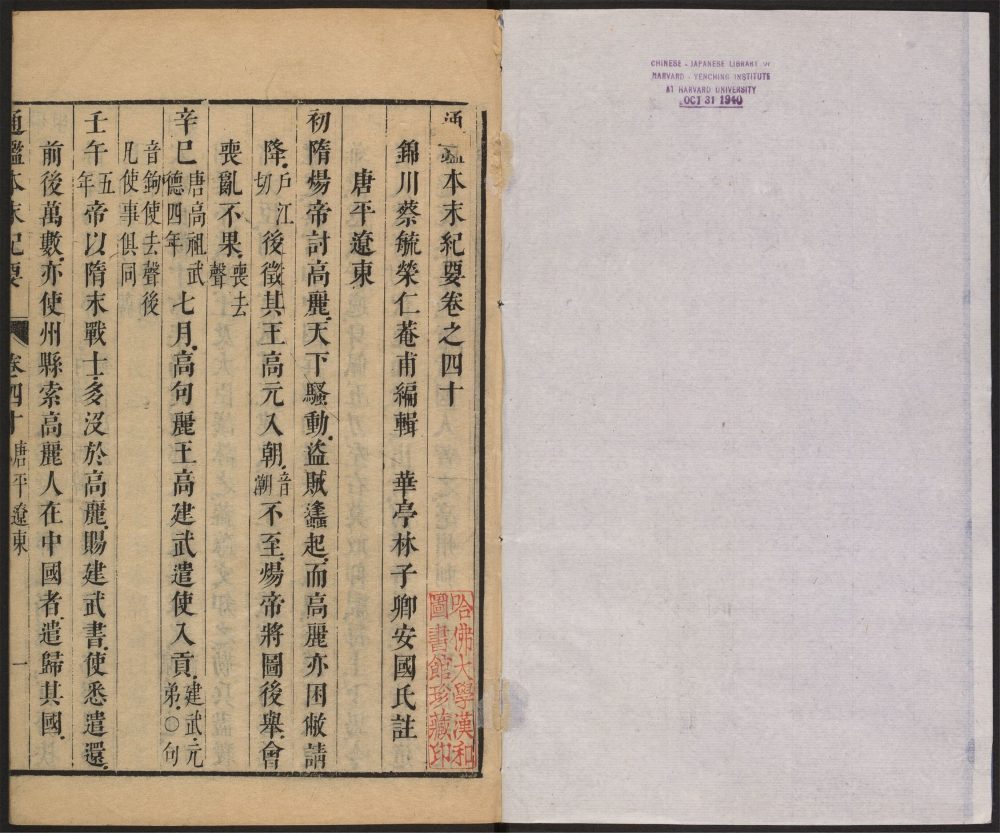 CHINESE - JAPANESE LIBRARY OF
HARVARD - YENCHING INSTITUTE
AT HARVARD UNIVERSITY
OCT 31 1940
通鑑本末紀要卷之四十
錦川蔡毓榮仁菴甫編輯 華亭林子卿安國氏註
唐平遼東
初隋煬帝討高麗天下騷動盜賊蠭起而高麗亦困敝請
降戶江切後徵其王高元入朝音潮不至煬帝將圖後舉會
喪亂不果喪去聲
辛巳唐高祖武德四年七月高句麗王高建武遣使入貢建武元弟○句
音鉤使去聲後凡使事俱同
壬午五年帝以隋末戰士多沒於高麗賜建武書使悉遣還
前後萬數亦使州縣索高麗人在中國者遣歸其國
通鑑本末紀要 卷四十 唐平遼東 一
哈佛大學漢和
圖書館珍藏印